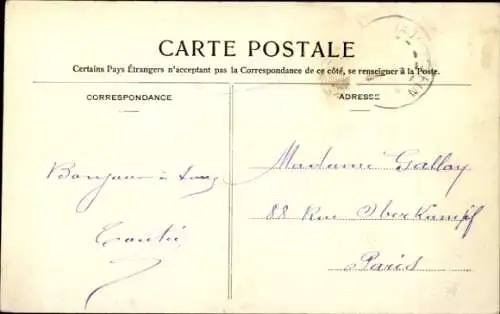 CARTE POSTALE
Certains Pays Étrangers n'acceptant pas la Correspondance de ce côté, se renseigner à la Poste.
CORRESPONDANCE
ADRESSE
Bonjour à tous
Madame Gallay
88 Rue Oberkampf
Paris